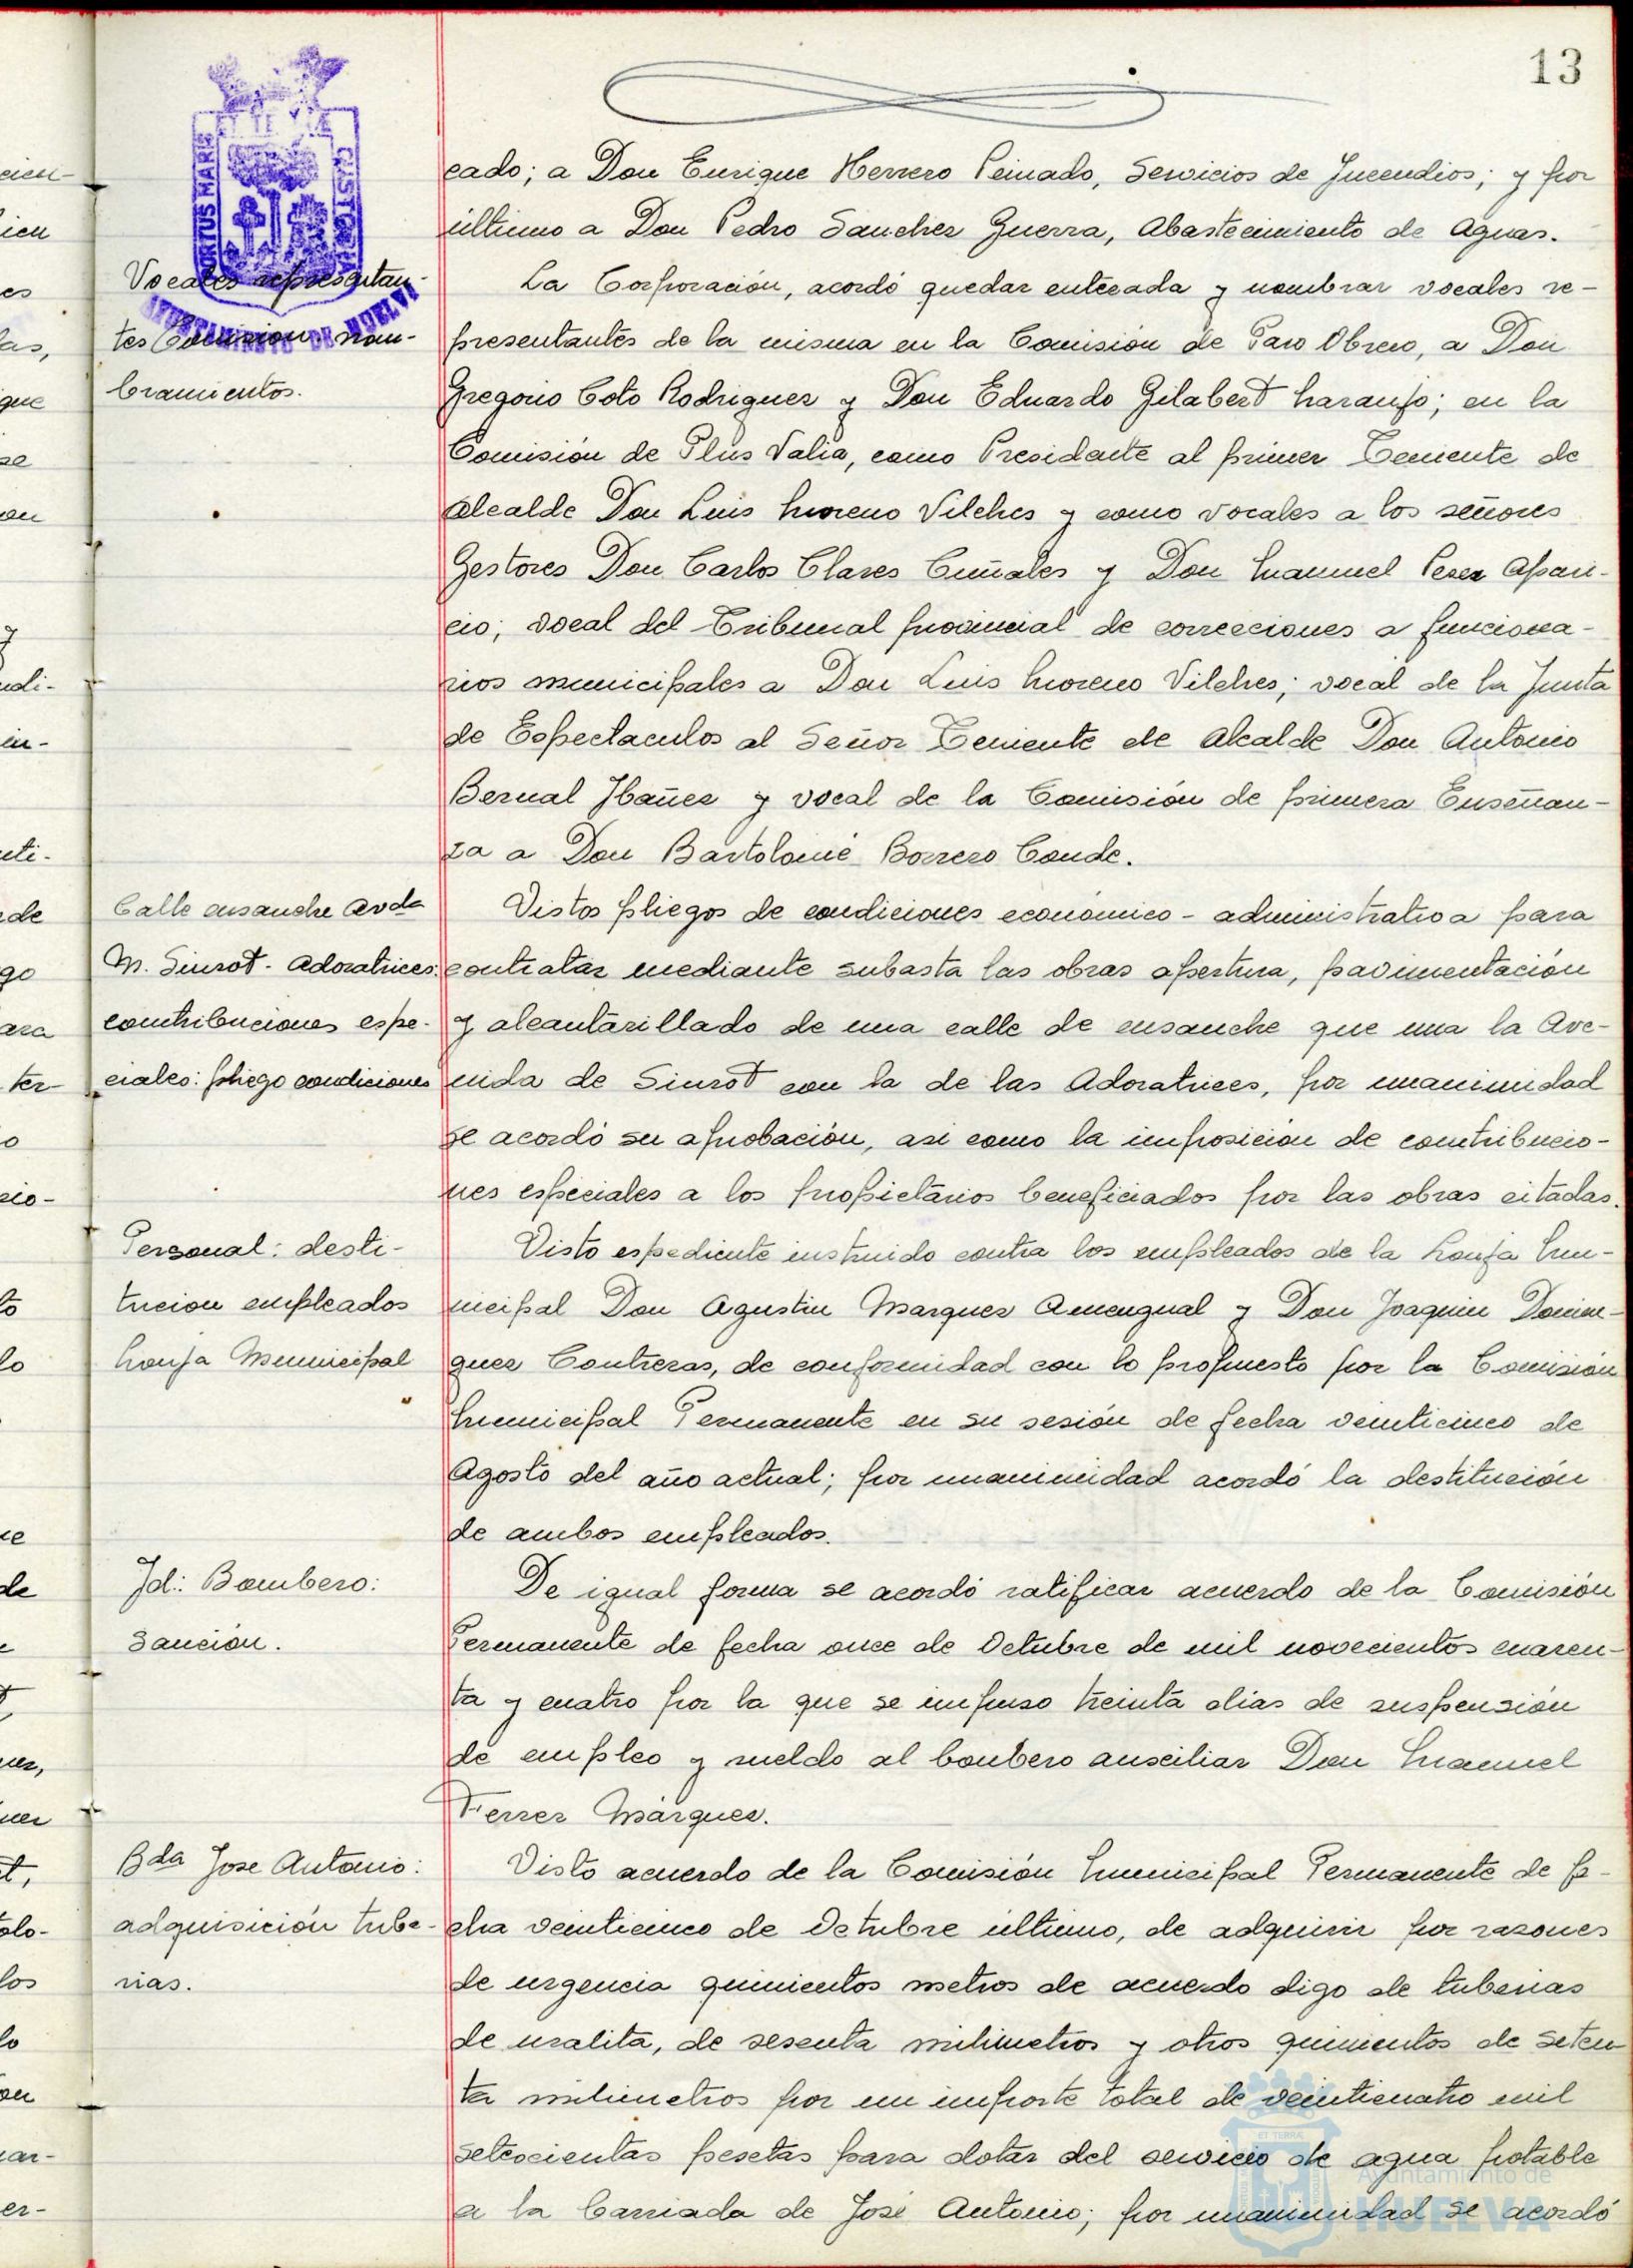 13
PORTUS MARIS ET TERRAE CUSTODIA
AYUNTAMIENTO DE HUELVA
cado; a Don Enrique Herrero Peinado, Servicios de Incendios; y por
último a Don Pedro Sanchez Guerra, Abastecimiento de Aguas.
Vocales representan-
tes Comision: nom-
bramientos.
La Corporación, acordó quedar enterada y nombrar vocales re-
presentantes de la misma en la Comisión de Paro Obrero, a Don
Gregorio Coto Rodriguez y Don Eduardo Gilabert Naranjo; en la
Comisión de Plus Valia, como Presidente al primer Teniente de
Alcalde Don Luis Moreno Vilches y como vocales a los señores
Gestores Don Carlos Clares Cuñales y Don Manuel Perez Apari-
cio; vocal del Tribunal provincial de correcciones a funciona-
rios municipales a Don Luis Moreno Vilches; vocal de la Junta
de Espectaculos al Señor Teniente de Alcalde Don Antonio
Bernal Ibañez y vocal de la Comisión de primera Enseñan-
za a Don Bartolomé Borrero Conde.
Calle ensanche Avda
M. Siurot - Adoratrices:
contribuciones espe-
ciales: pliego condiciones
Vistos pliegos de condiciones económico - administrativa para
contratar mediante subasta las obras apertura, pavimentación
y alcantarillado de una calle de ensanche que una la Ave-
nida de Siurot con la de las Adoratrices, por unanimidad
se acordó su aprobación, asi como la imposición de contribucio-
nes especiales a los propietarios beneficiados por las obras citadas.
Personal: desti-
tucion empleados
Lonja Municipal
Visto espediente instruido contra los empleados de la Lonja Mu-
nicipal Don Agustin Marquez Amengual y Don Joaquin Domin-
guez Contreras, de conformidad con lo propuesto por la Comisión
Municipal Permanente en su sesión de fecha veinticinco de
Agosto del año actual; por unanimidad acordó la destitución
de ambos empleados.
Id: Bombero:
Sanción.
De igual forma se acordó ratificar acuerdo de la Comisión
Permanente de fecha once de Octubre de mil novecientos cuaren-
ta y cuatro por la que se impuso treinta dias de suspensión
de empleo y sueldo al bombero auxciliar Don Manuel
Ferrer Márquez.
Bda Jose Antonio:
adquisición tube-
rias.
Visto acuerdo de la Comisión Municipal Permanente de fe-
cha veinticinco de Octubre último, de adquirir por razones
de urgencia quinientos metros de acuerdo digo de tuberias
de uralita, de sesenta milimetros y otros quinientos de seten-
ta milimetros por un importe total de veinticuatro mil
setecientas pesetas para dotar del servicio de agua potable
a la Barriada de José Antonio; por unanimidad se acordó
Ayuntamiento de
HUELVA